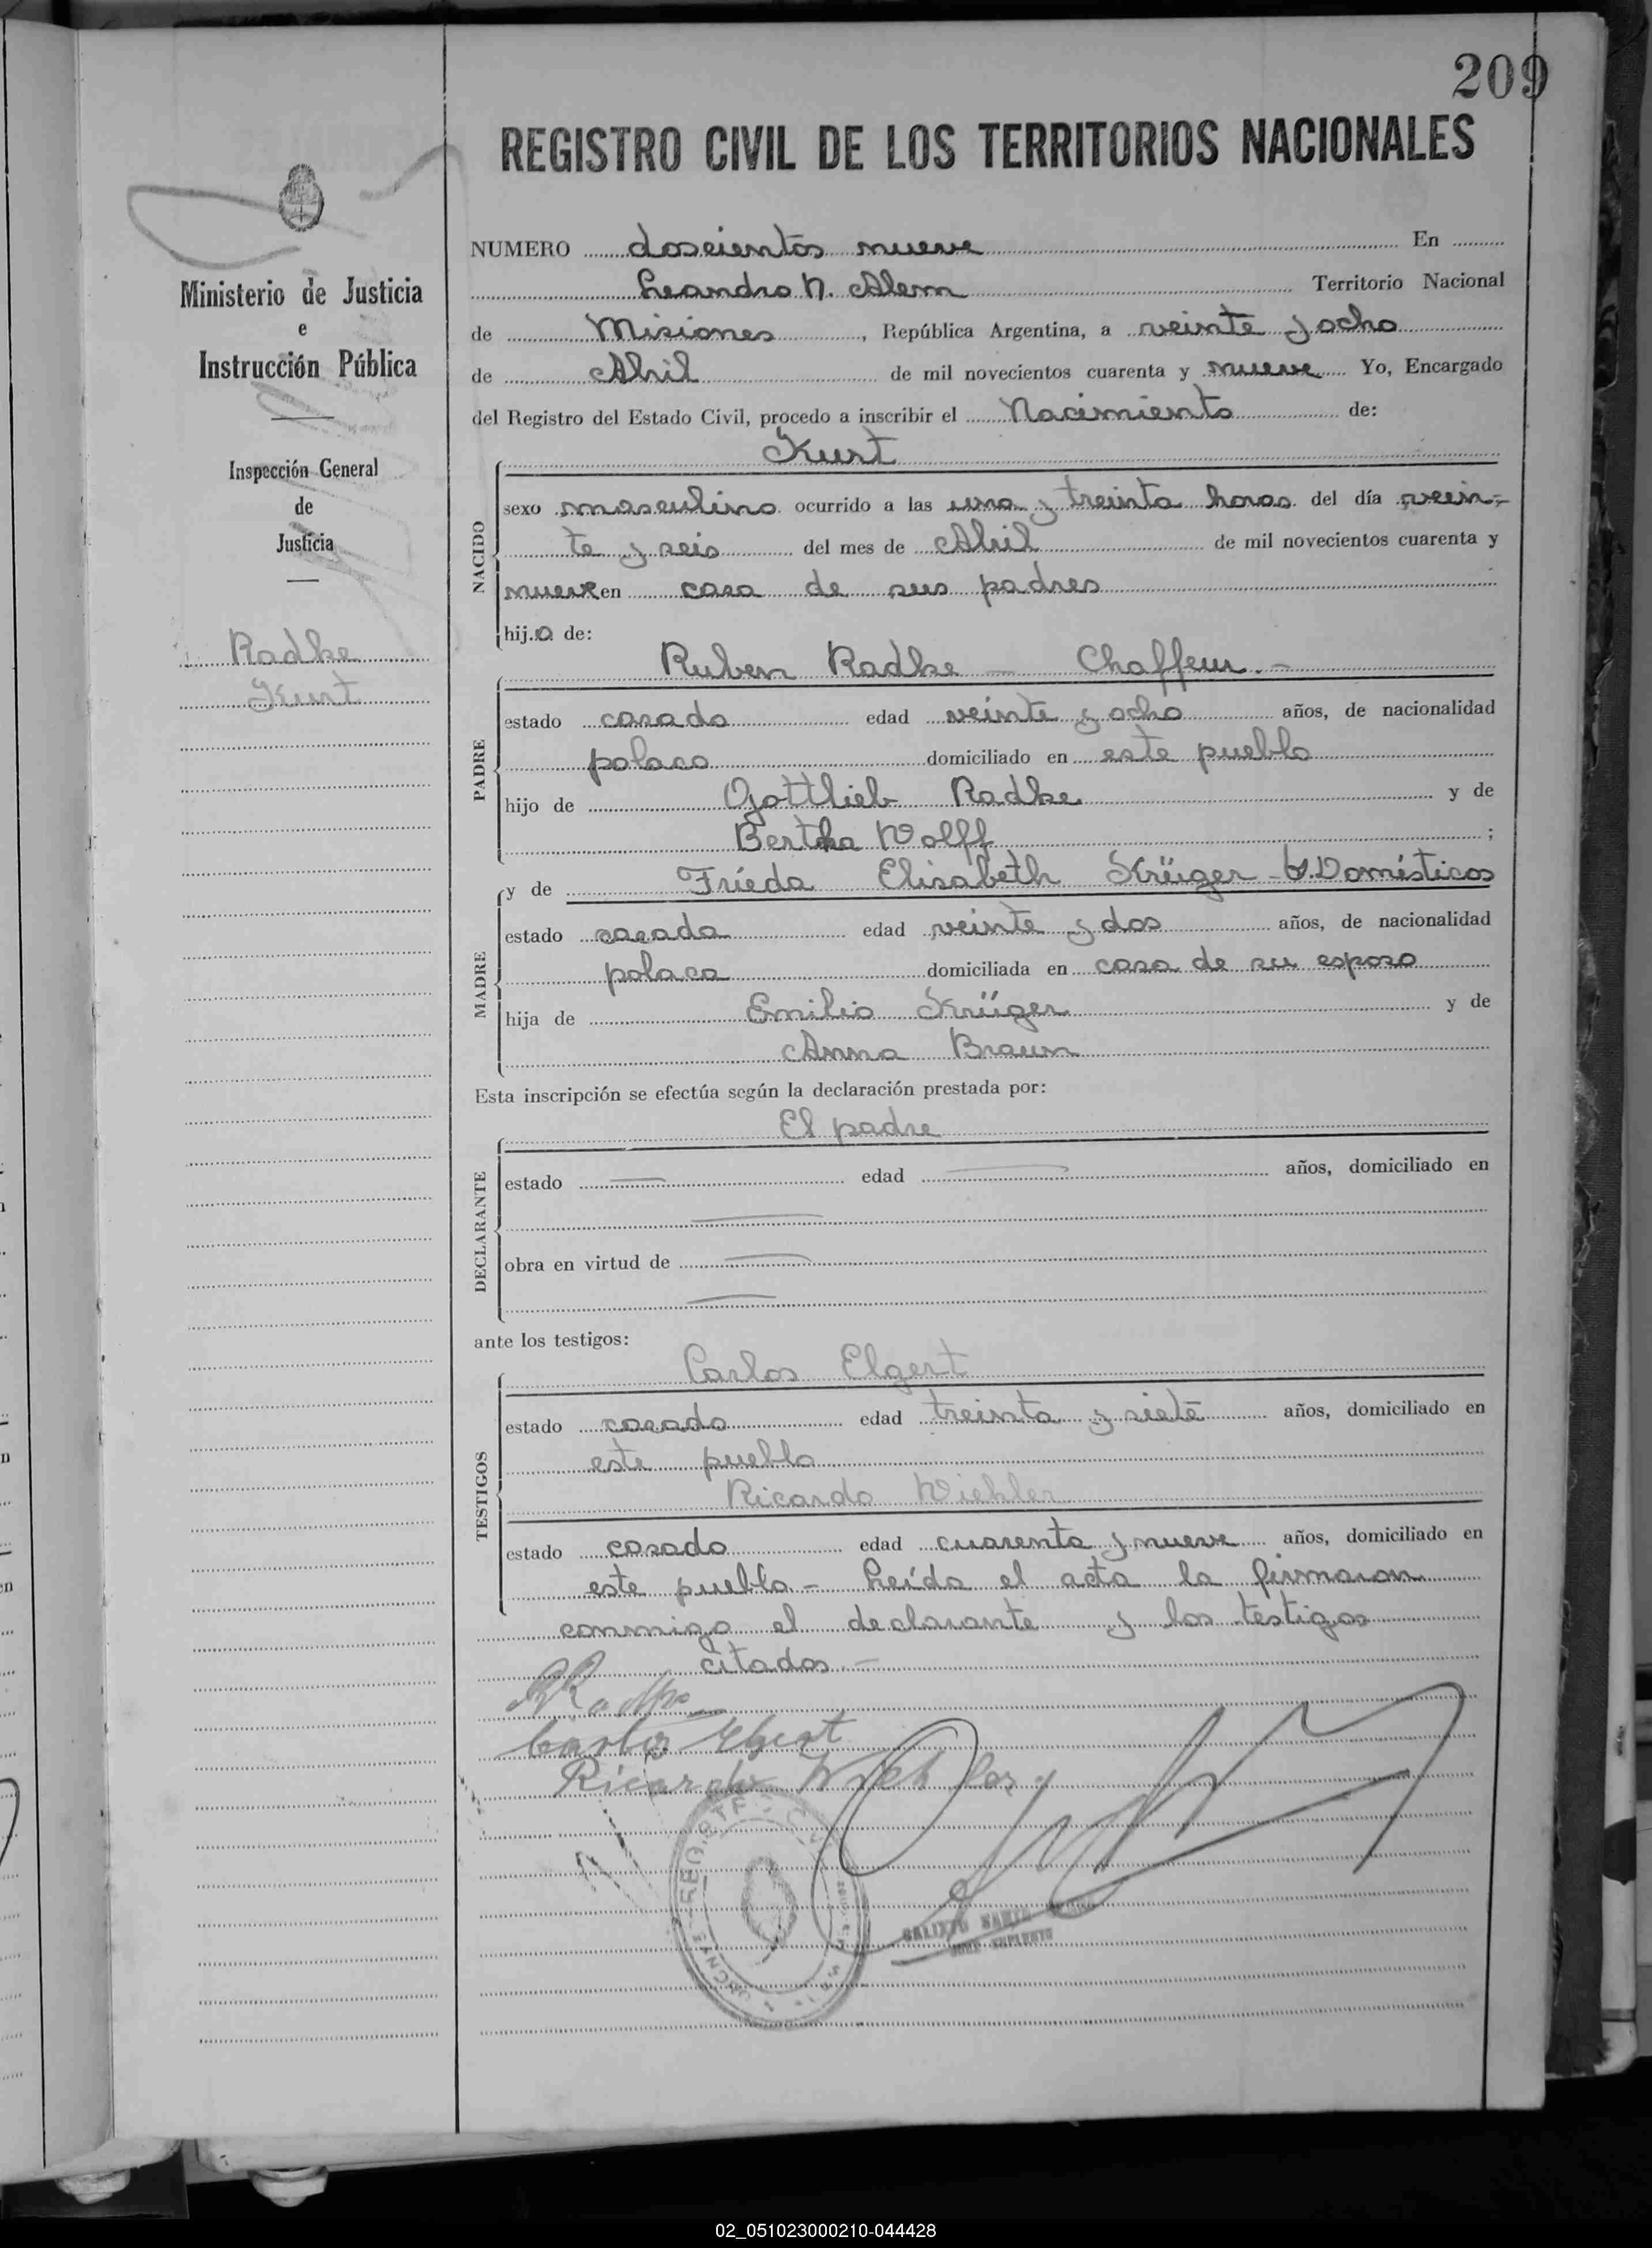 209
REGISTRO CIVIL DE LOS TERRITORIOS NACIONALES
Ministerio de Justicia
e
Instrucción Pública
Inspección General
de
Justicia
Radke
Kurt
NUMERO doscientos nueve En
Leandro N. Alem Territorio Nacional
de Misiones, República Argentina, a veinte y ocho
de Abril de mil novecientos cuarenta y nueve Yo, Encargado
del Registro del Estado Civil, procedo a inscribir el Nacimiento de:
Kurt
NACIDO
sexo masculino ocurrido a las una y treinta horas del día vein-
te y seis del mes de Abril de mil novecientos cuarenta y
nueve en casa de sus padres
hijo de:
Ruben Radke — Chaffeur.—
PADRE
estado casado edad veinte y ocho años, de nacionalidad
polaco domiciliado en este pueblo
hijo de Gottlieb Radke y de
Bertha Wolff ;
y de Frieda Elisabeth Krüger - Domésticos
MADRE
estado casada edad veinte y dos años, de nacionalidad
polaca domiciliada en casa de su esposo
hija de Emilio Krüger y de
Anna Braun
Esta inscripción se efectúa según la declaración prestada por:
El padre
DECLARANTE
estado — edad — años, domiciliado en
—
obra en virtud de —
—
ante los testigos:
Carlos Elgert
TESTIGOS
estado casado edad treinta y siete años, domiciliado en
este pueblo
Ricardo Wiehler
estado casado edad cuarenta y nueve años, domiciliado en
este pueblo - Leída el acta la firmaron
conmigo el declarante y los testigos
citados.—
RRadke
Carlos Elgert
Ricardo Wiehler
02_051023000210-044428